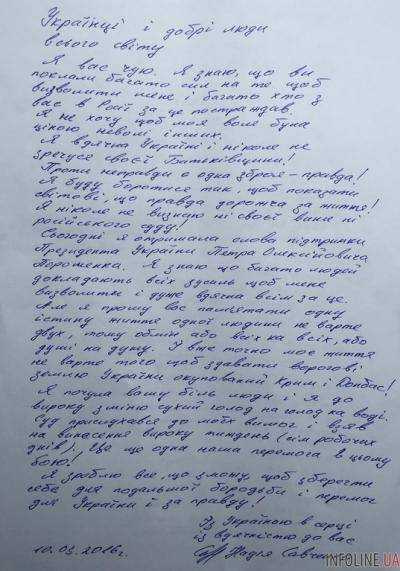 Українці і добрі люди
всього світу
Я вас чую. Я знаю, що ви
поклали багато сил на те щоб
визволити мене і багато хто з
вас в Росії за це постраждав.
Я не хочу щоб моя воля була
ціною неволі інших.
Я вдячна Україні і ніколе не
зречусе своєї Батьківщини!
Проти неправди є одна зброя – правда!
Я буду боротися так, щоб показати
світові, що правда дорожча за життя!
Я ніколе не визнаю ні своєї вини ні
російського суду!
Сьогодні я отримала слова підтримки
Президента України Петра Олексійовича
Порошенка. Я знаю що багато людей
докладають всіх зусиль щоб мене
визволити і дуже вдячна всім за це.
Але я прошу вас пам'ятати одну
істину життя одної людини не варте
двух, тому обмін або всіх на всіх, або
душі на душу. І вже точно моє життя
не варто того щоб здавати ворогові
землю України окупований Крим і Донбас!
Я почула вашу біль люди і я до
вироку зміню сухий голод на голод на воді.
Суд прислухався до моїх вимог і взяв
на винесення вироку тиждень (сім робочих
днів). Це ще одна наша перемога в цьому
бою!
Я зроблю все, що зможу, щоб зберегти
себе для подальшої бородьби і перемог
для України і за правду!
Із Україною в серці
із вдячністю до вас
10.03.2016г. Надія Савченко
INFOLINE.UA